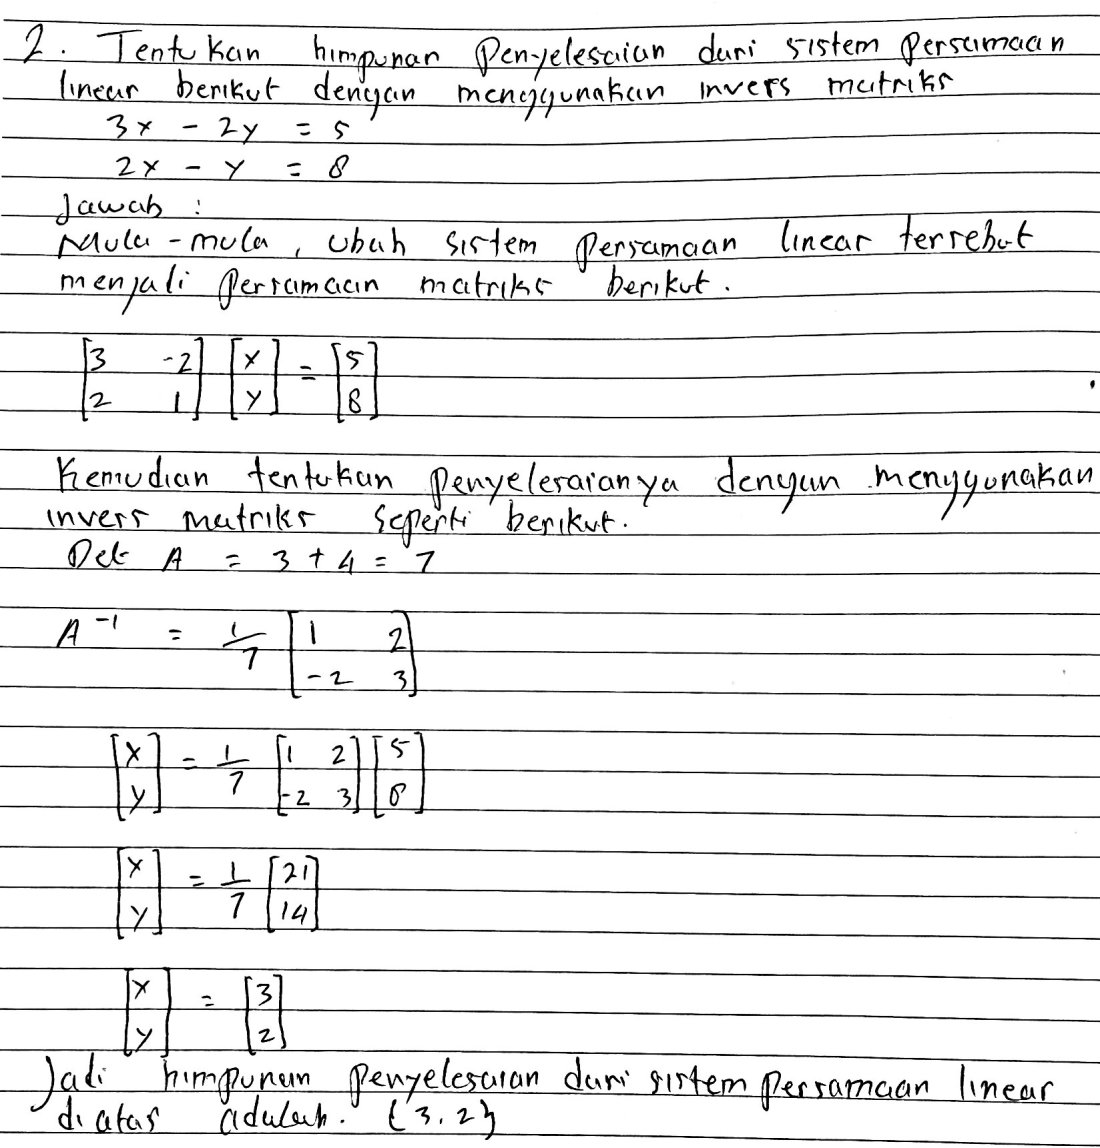 2. Tentukan himpunan Penyelesaian dari sistem Persamaan
linear berikut dengan menggunakan invers matriks
3x - 2y = 5
2x - y = 8
Jawab :
Mula-mula, Ubah sistem Persamaan linear tersebut
menjadi Persamaan matriks berikut.
[3 -2] [x] = [5]
[2 1] [y] [8]
Kemudian tentukan penyelesaianya dengan menggunakan
invers matriks seperti berikut.
Det A = 3 + 4 = 7
A⁻¹ = 1/7 [1 2]
[-2 3]
[x] = 1/7 [1 2] [5]
[y] [-2 3] [8]
[x] = 1/7 [21]
[y] [14]
[x] = [3]
[y] [2]
Jadi himpunan penyelesaian dari sistem persamaan linear
diatas adalah. {3.2}